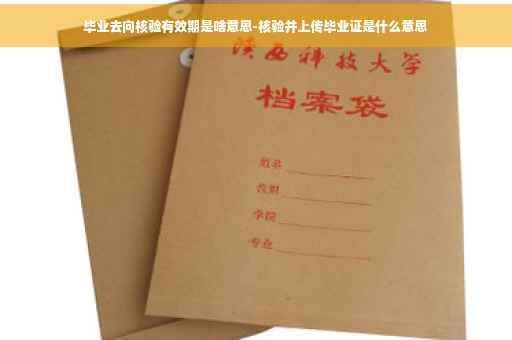 毕业去向核验有效期是啥意思-核验并上传毕业证是什么意思
陕西科技大学
档案袋
姓名
学院
专业